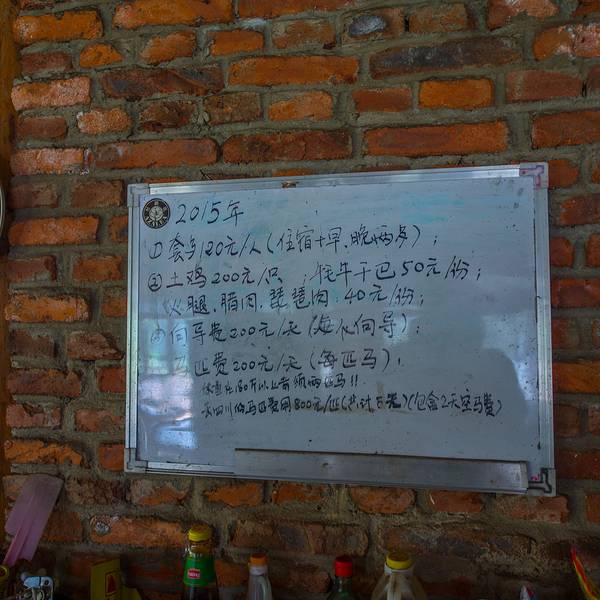 2015年
① 套与120元/人(住宿+早、晚两与);
② 土鸡200元/只 ; 牦牛干巴50元/份;
火腿、腊肉、琵琶肉 40元/份;
③ 向导费200元/天(每个向导);
马匹费200元/天(每匹马);
体重在160斤以上者须两匹马!!
去四川的马匹费用800元/匹(共计5天)(包含2天空马费)